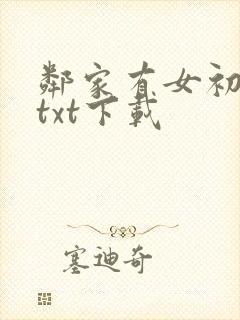 鄰家有女初
txt下載
塞迪奇